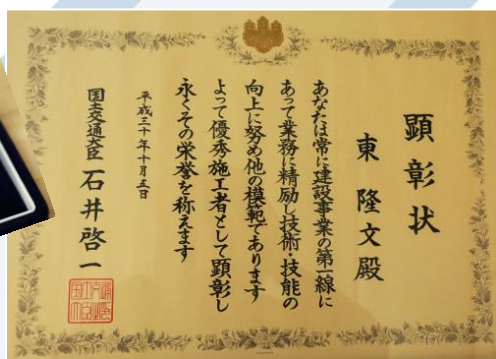 顕彰状
東隆文殿
あなたは常に建設事業の第一線に
あって業務に精励し技術・技能の
向上に努め他の模範であります
よって優秀施工者として顕彰し
永くその栄誉を称えます
平成三十年十月五日
国土交通大臣 石井啓一